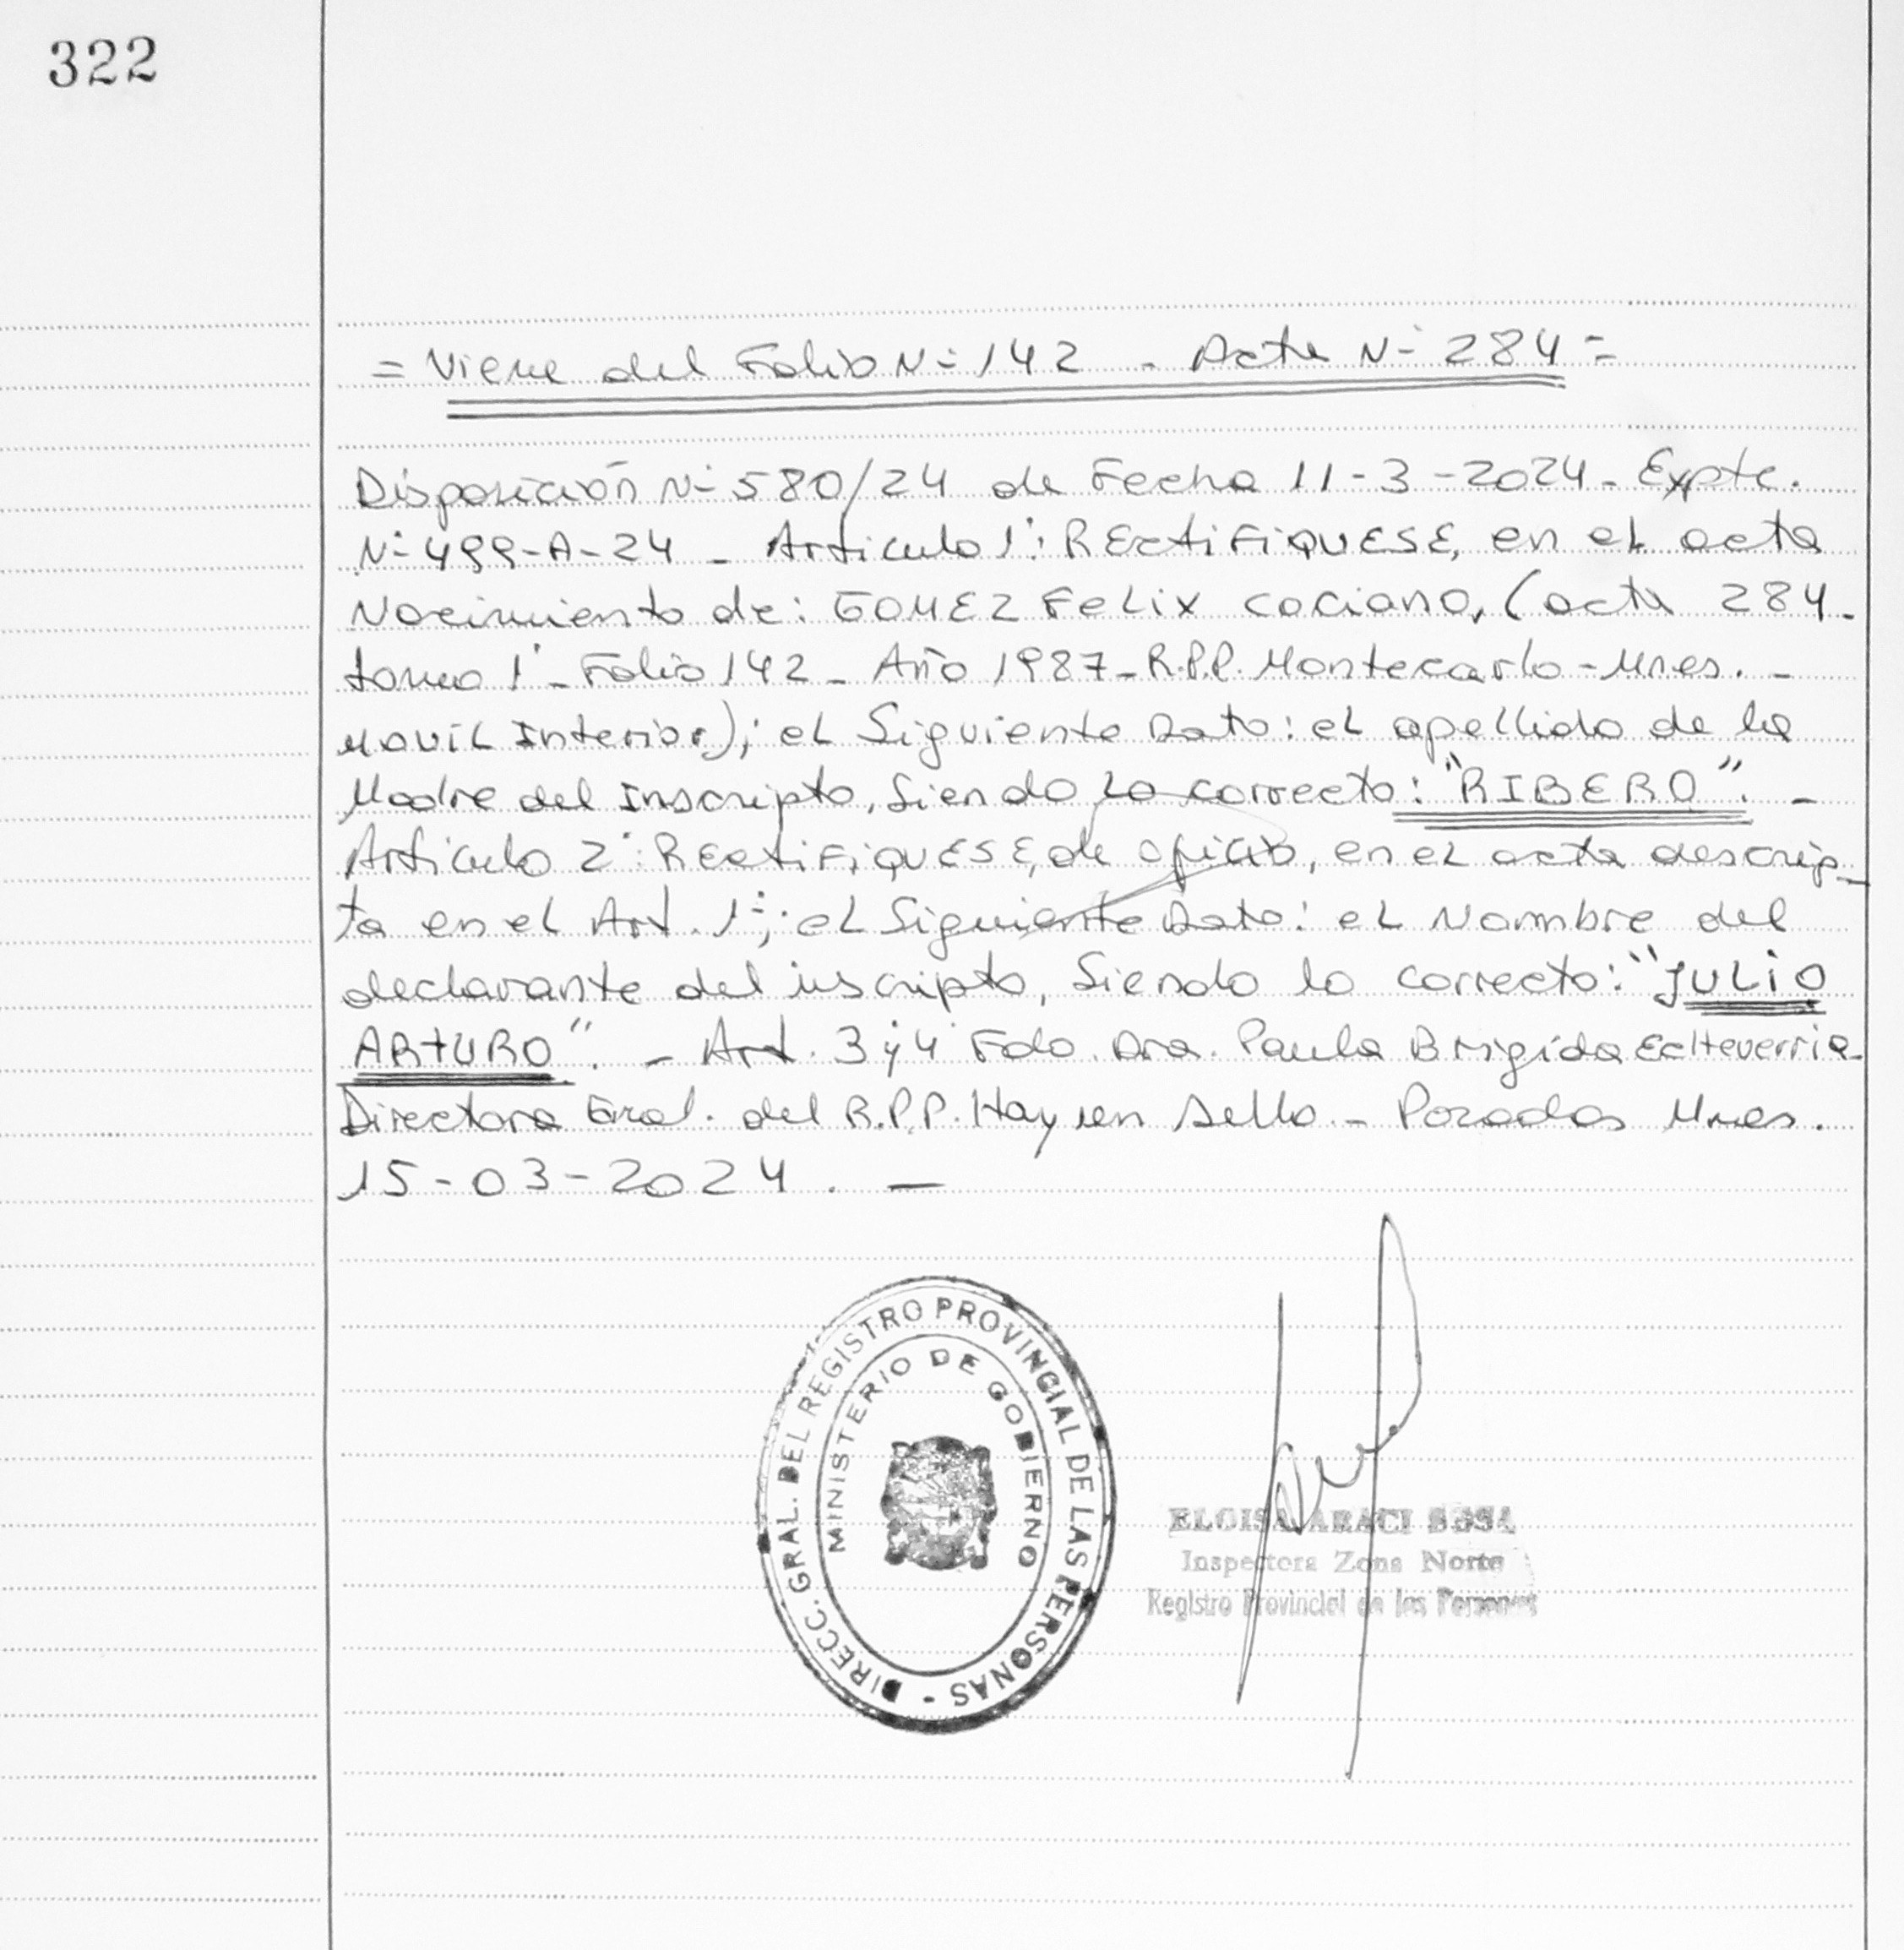 322
= Viene del Folio N= 142 - Acta N- 284 =
Disposición N- 580/24 de Fecha 11-3-2024- Expte.
N- 499-A-24 - Articulo 1°: REctiFiQUESE, en el acta
Nacimiento de: GOMEZ FeLix caciano, (acta 284-
tomo 1° - Folio 142 - Año 1987 - R.P.P. Montecarlo - Mnes. -
Movil Interior); el Siguiente Dato: el apellido de la
Madre del Inscripto, Siendo Lo correcto: "RIBERO". -
Articulo 2°: REctiFiQUESE, de oficio, en el acta descrip-
ta en el Art. 1°; el Siguiente Dato: el Nombre del
declarante del inscripto, Siendo lo correcto: "JULiO
ARtURO". - Art. 3 y 4 Fdo. Dra. Paula Brigida Echeverria-
Directora Gral. del R.P.P. Hay un Sello - Posadas Mnes.
15-03-2024. —
DIRECC. GRAL. DEL REGISTRO PROVINCIAL DE LAS PERSONAS -
MINISTERIO DE GOBIERNO
ELOISA ARACI SOSA
Inspectora Zona Norte
Registro Provincial de las Personas